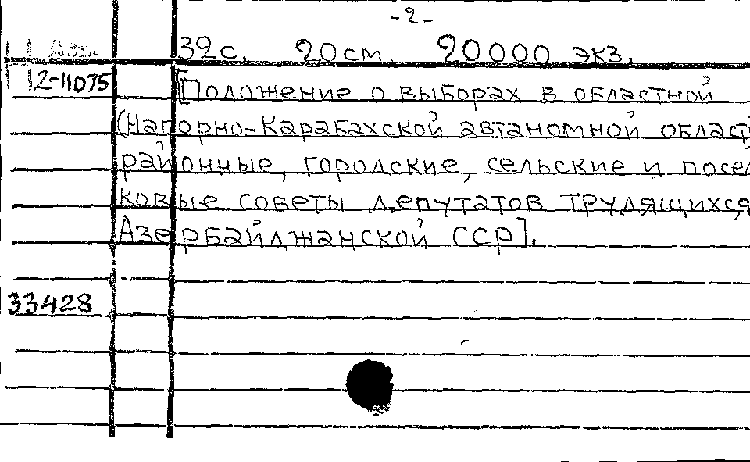 -2-
Аз. 32 с. 20 см. 20000 экз.
12-11075 [Положение о выборах в областной
(Нагорно-Карабахской автаномной област
районные, городские, сельские и посел
ковые советы депутатов трудящихся
Азербайджанской ССР].
33428